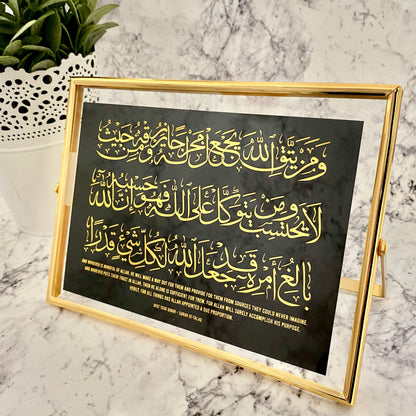 وَمَن يَتَّقِ اللَّهَ يَجْعَل لَّهُ مَخْرَجًا وَيَرْزُقْهُ مِنْ حَيْثُ
لَا يَحْتَسِبُ وَمَن يَتَوَكَّلْ عَلَى اللَّهِ فَهُوَ حَسْبُهُ إِنَّ اللَّهَ
بَالِغُ أَمْرِهِ قَدْ جَعَلَ اللَّهُ لِكُلِّ شَيْءٍ قَدْرًا
AND WHOEVER IS MINDFUL OF ALLAH, HE WILL MAKE A WAY OUT FOR THEM AND PROVIDE FOR THEM FROM SOURCES THEY COULD NEVER IMAGINE.
AND WHOEVER PUTS THEIR TRUST IN ALLAH, THEN HE ALONE IS SUFFICIENT FOR THEM. FOR ALLAH WILL SURELY ACCOMPLISH HIS PURPOSE.
VERILY, FOR ALL THINGS HAS ALLAH APPOINTED A DUE PROPORTION.